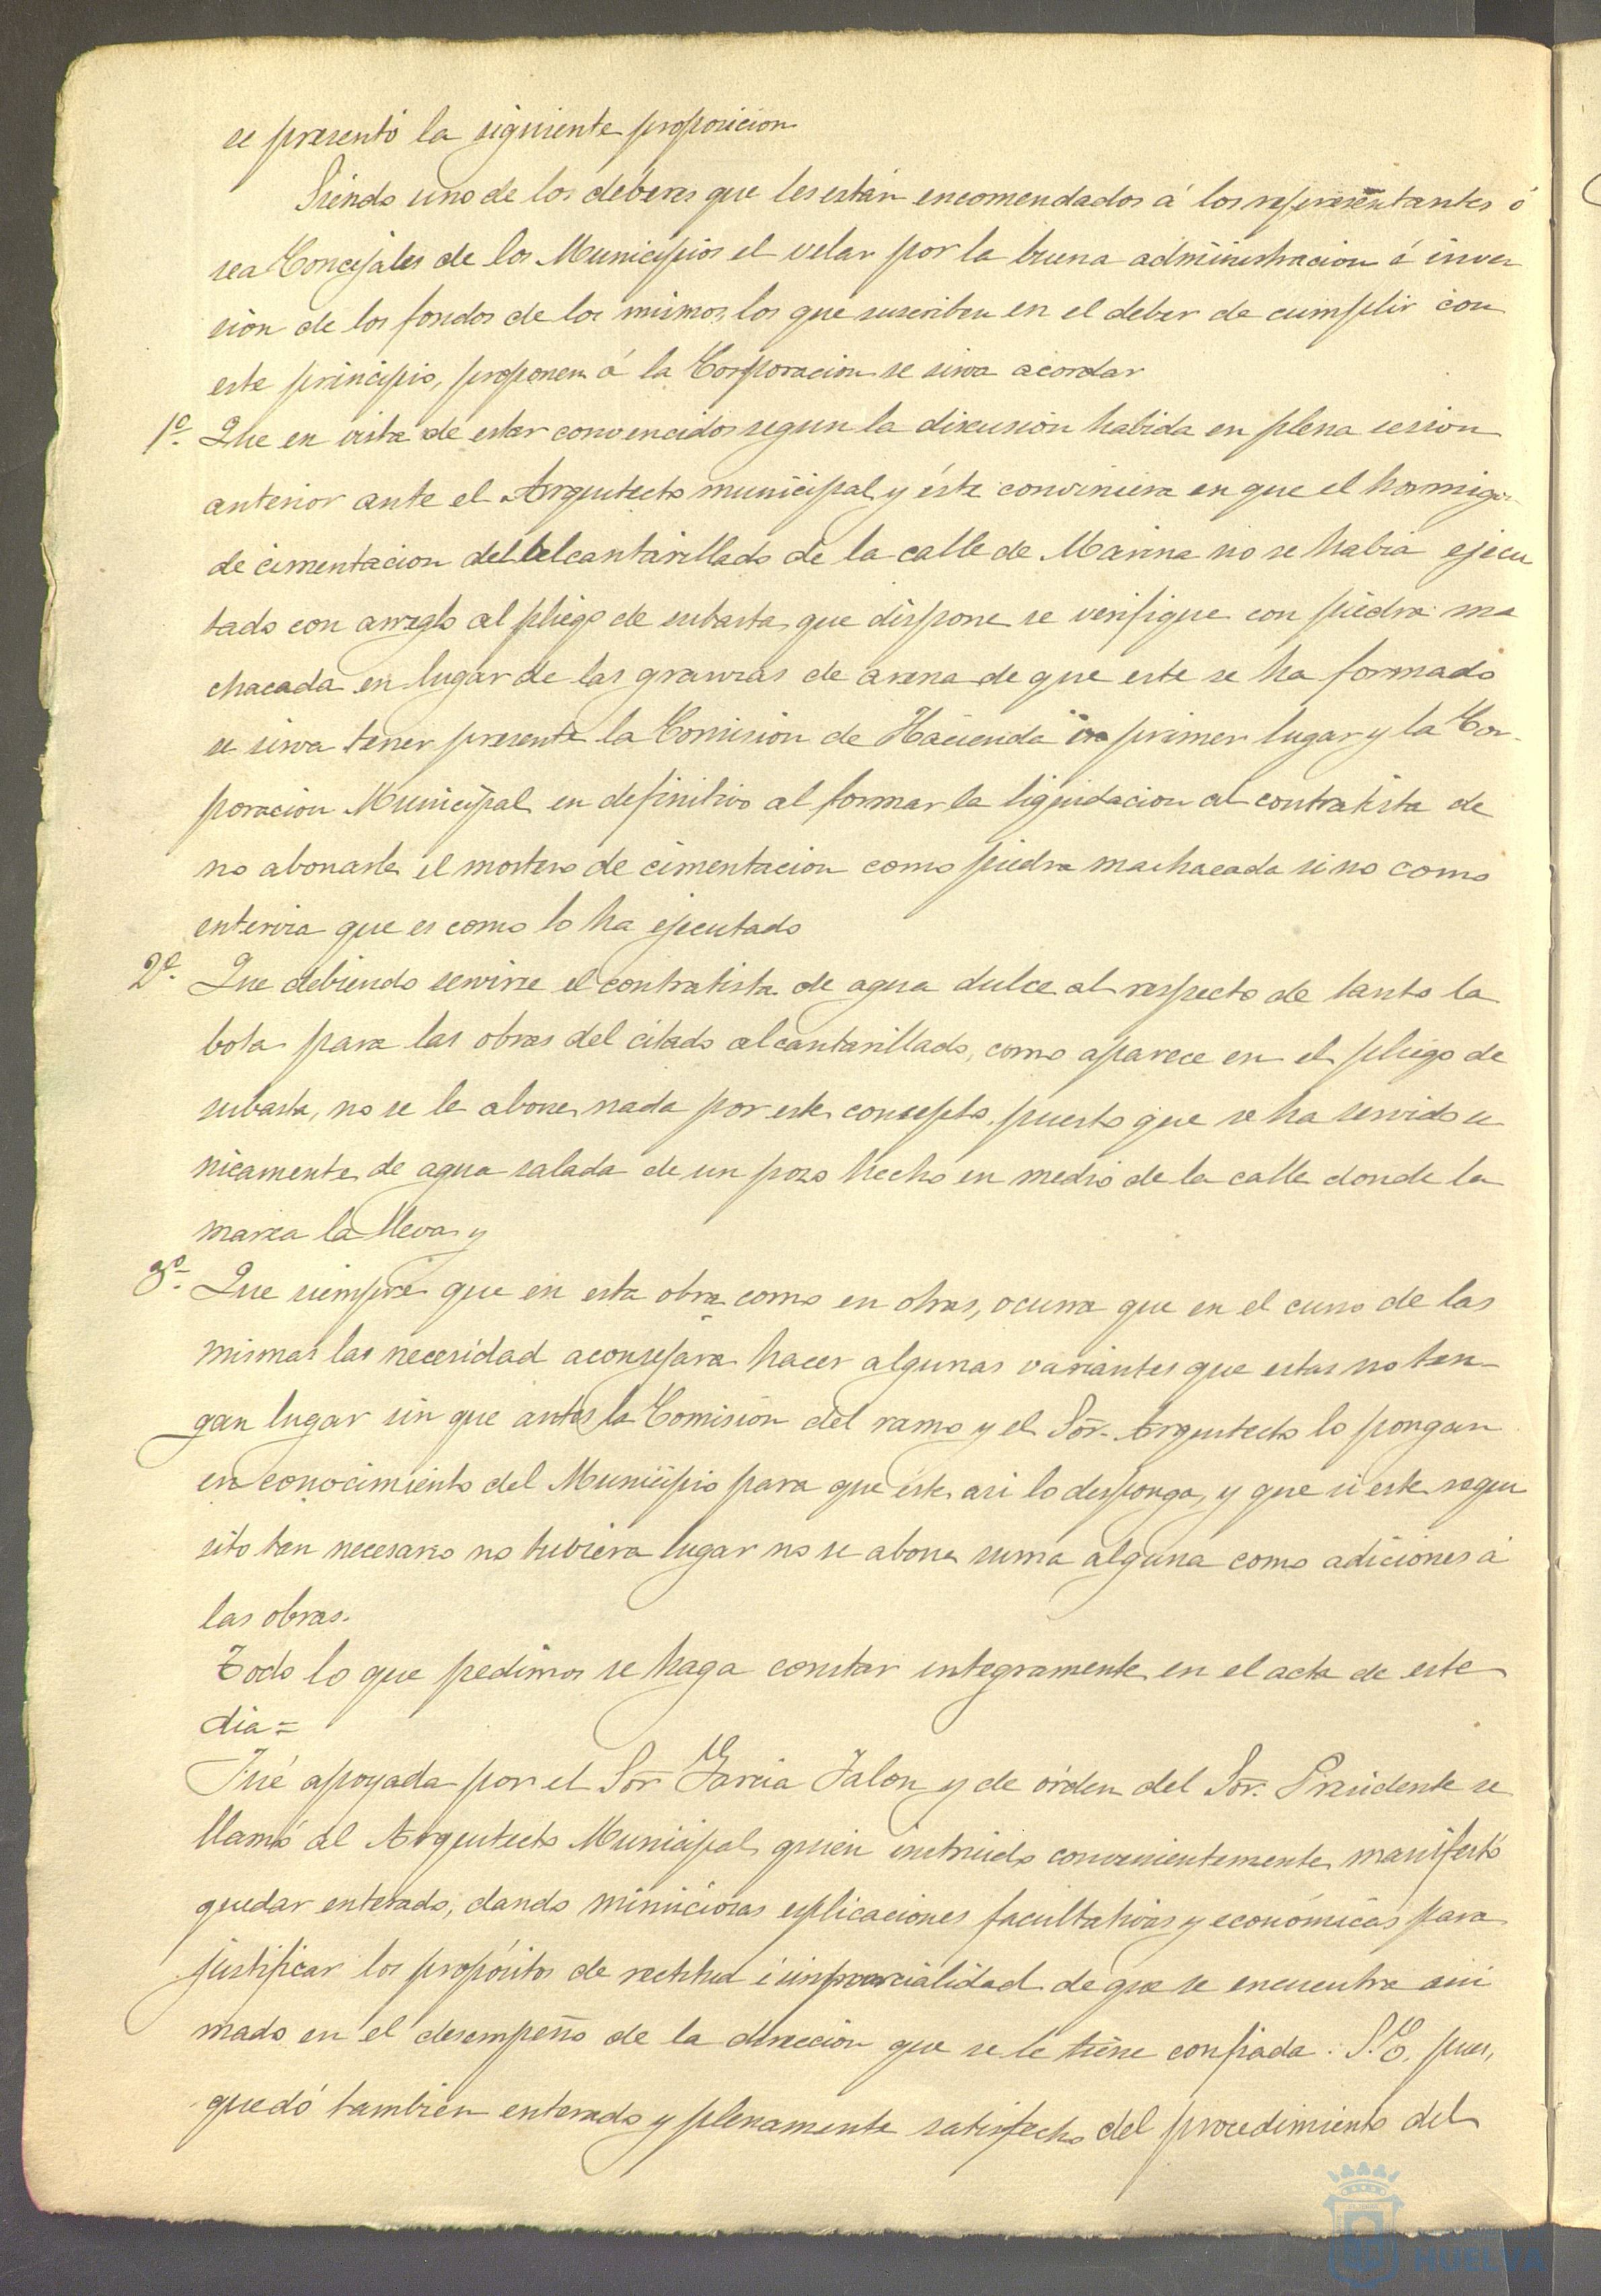 se presentó la siguiente proposicion
Siendo uno de los deberes que les están encomendados á los representantes ó
sea Concejales de los Municipios el velar por la buena administracion é inver
sion de los fondos de los mismos, los que suscriben en el deber de cumplir con
este principio, proponen á la Corporacion se sirva acordar
1º Que en vista de estar convencidos segun la discusion habida en plena sesion
anterior ante el Arquitecto municipal y éste conviniera en que el hormigon
de cimentacion del alcantarillado de la calle de Marina no se habia ejecu
tado con arreglo al pliego de subasta, que dispone se verifique con piedra ma
chacada en lugar de las granzas de arena de que este se ha formado
se sirva tener presente la Comision de Hacienda en primer lugar y la Cor-
poracion Municipal en definitivo al formar la liquidacion al contratista de
no abonarle el mortero de cimentacion como piedra machacada si no como
que es como lo ha ejecutado
2º Que debiendo servirse el contratista de agua dulce al respecto de tanto la
bota para las obras del citado alcantarillado, como aparece en el pliego de
subasta, no se le abone nada por este concepto, puesto que se ha servido u
nicamente de agua salada de un pozo hecho en medio de la calle donde la
marea la lleva y
3º Que siempre que en esta obra como en otras, ocurra que en el curso de las
mismas las necesidad aconsejara hacer algunas variantes que estas no ten-
gan lugar sin que antes la Comision del ramo y el Sor. Arquitecto lo pongan
en conocimiento del Municipio para que éste asi lo desponga, y que si este requi
sito tan necesario no tubiera lugar no se abone suma alguna como adiciones á
las obras.
Todo lo que pedimos se haga constar integramente en el acta de este
dia=
Fué apoyada por el Sor Garcia Jalon y de órden del Sor. Presidente se
llamó al Arquitecto Municipal quien instruido convenientemente manifestó
quedar enterado, dando minuciosas esplicaciones facultativas y económicas para
justificar los propósitos de rectitud é imparcialidad de que se encuentra ani
mado en el desempeño de la direccion que se le tiene confiada. S.E. pues,
quedó tambien enterado y plenamente satisfecho del procedimiento del
HUELVA